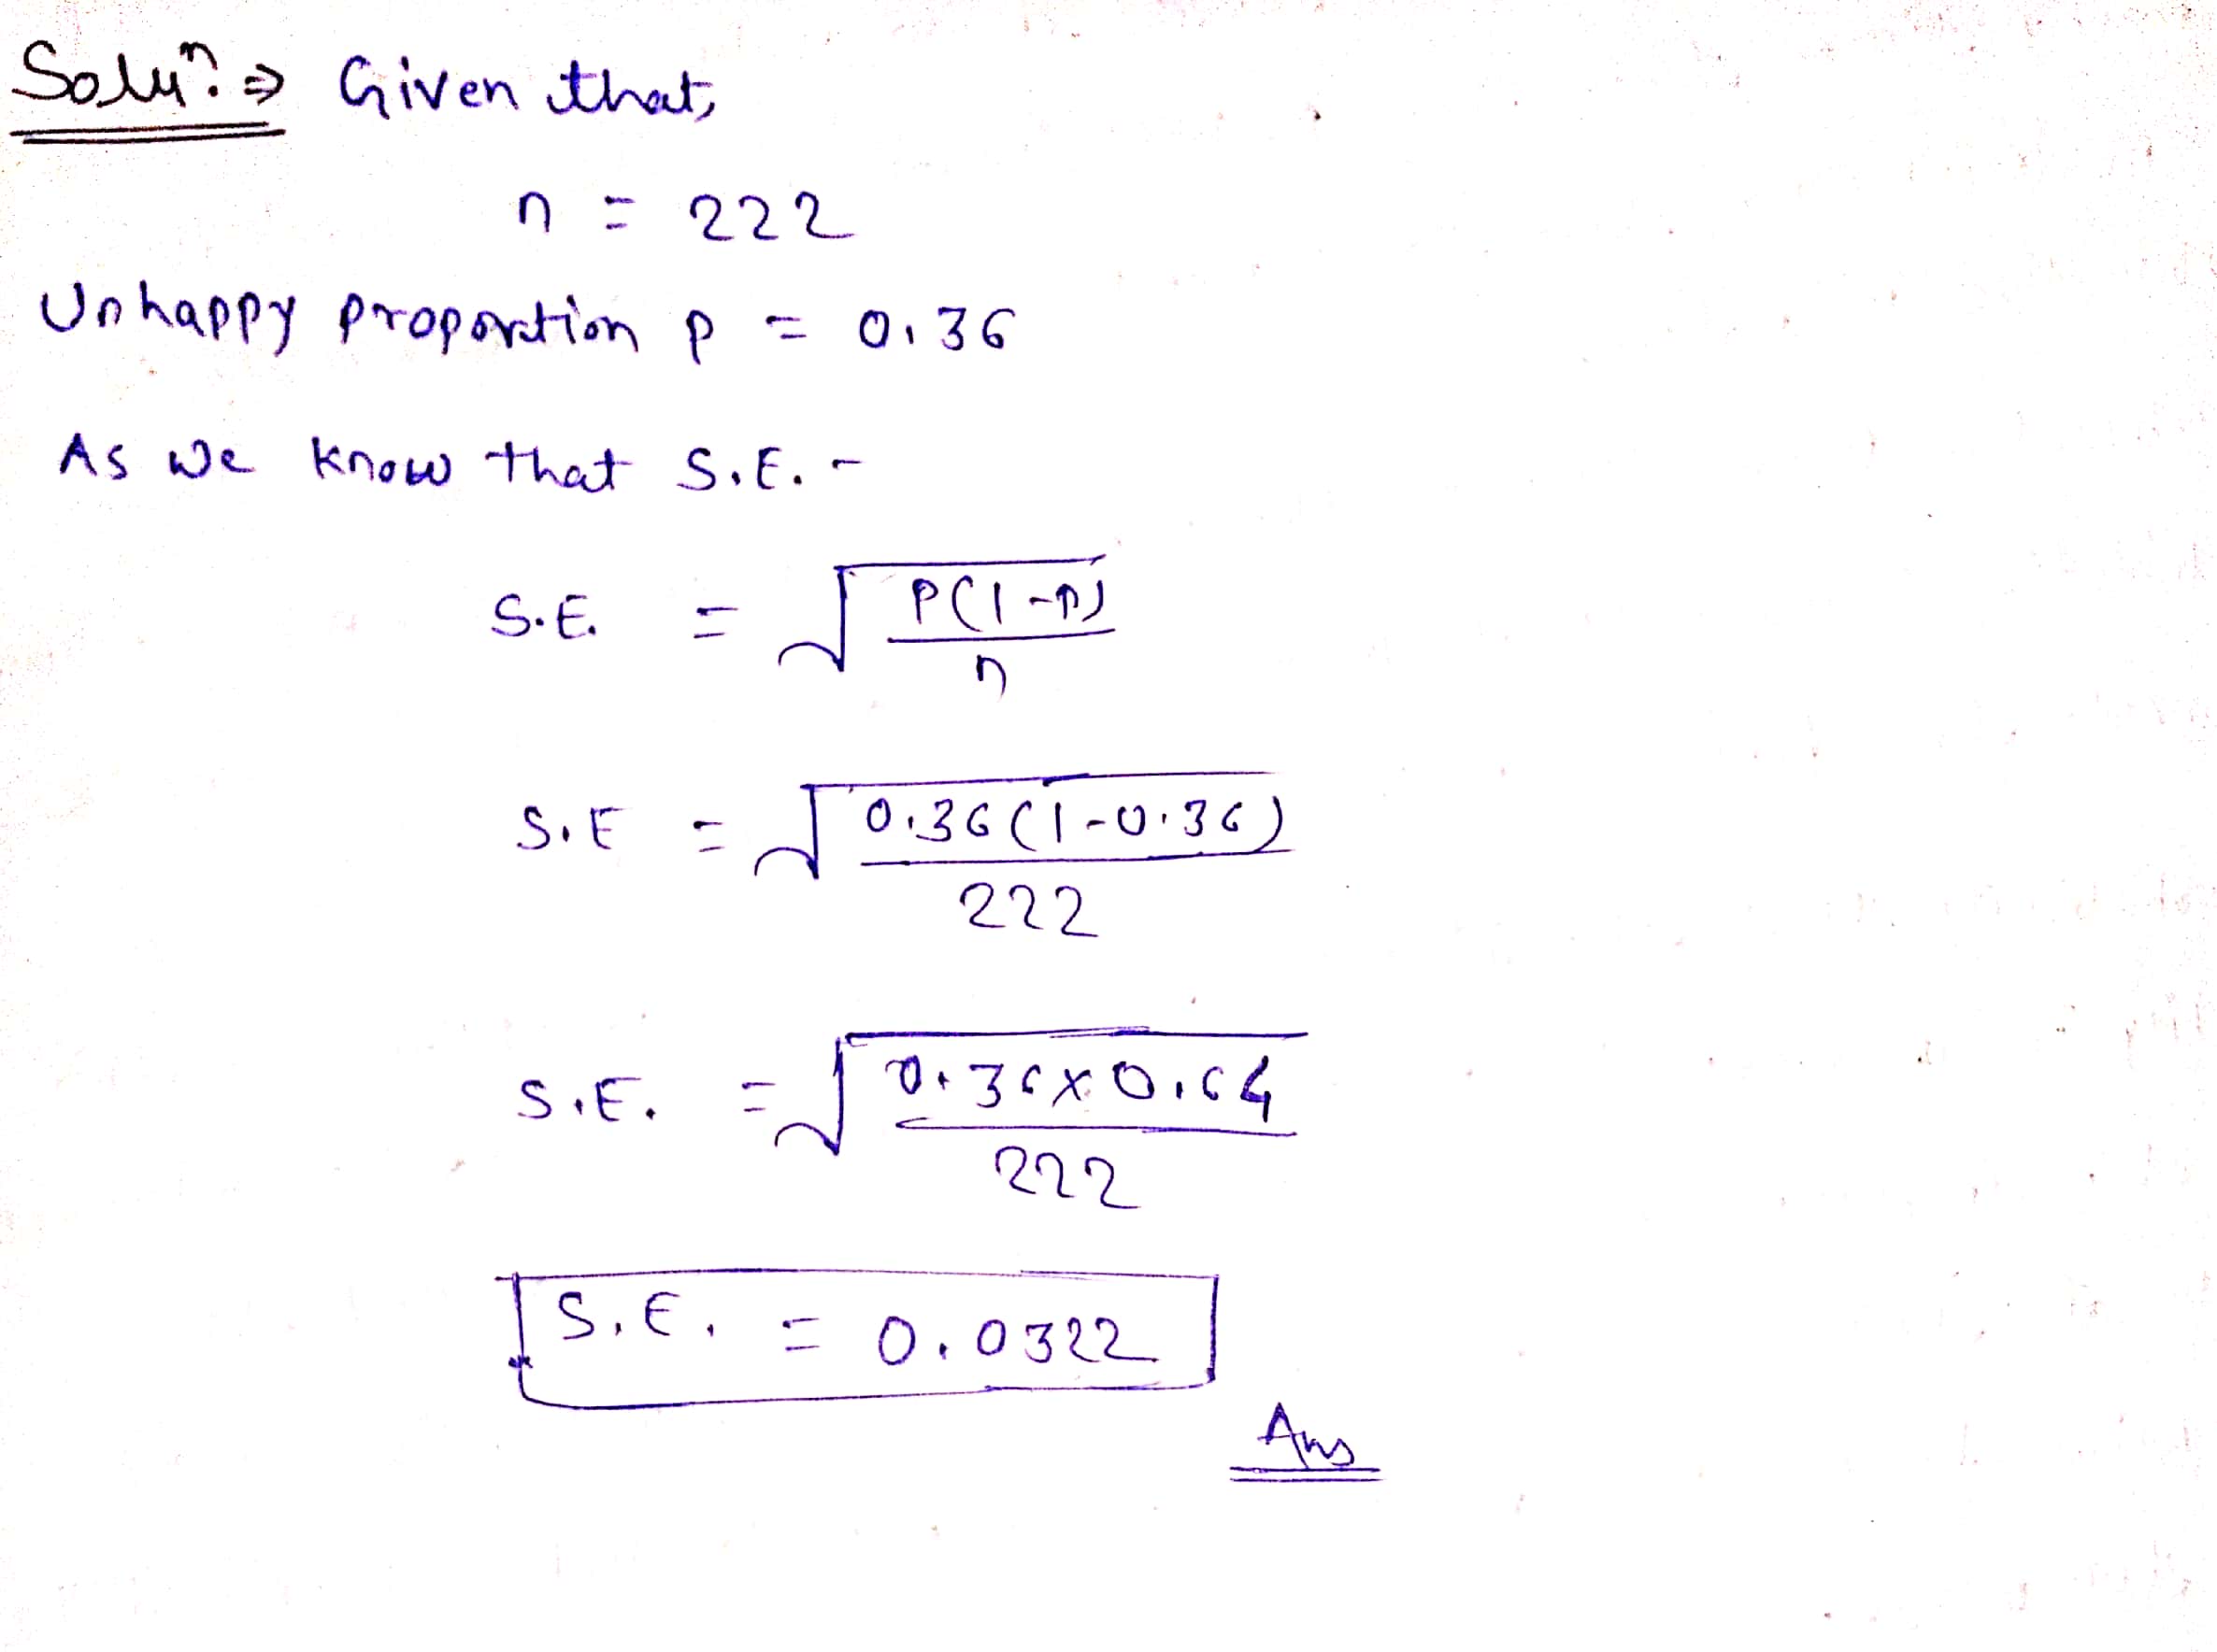 Soluⁿ. ⇒ Given that,
n = 222
Unhappy proportion p = 0.36
As we know that S.E. -
S.E. = √(P(1-p)/n)
S.E = √(0.36(1-0.36)/222)
S.E. = √(0.36×0.64/222)
S.E. = 0.0322
Ans